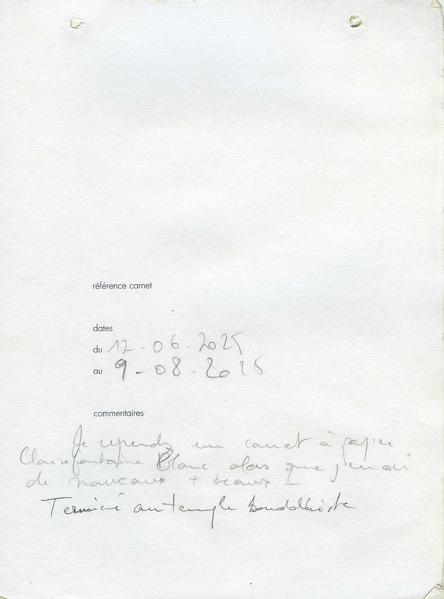 référence carnet
dates
du 12-06.2025
au 9-08.2025
commentaires
Je reprends un carnet à papier
Clairefontaine Blanc alors que j'en ai
de nouveaux + beaux
Terminé au temple bouddhiste